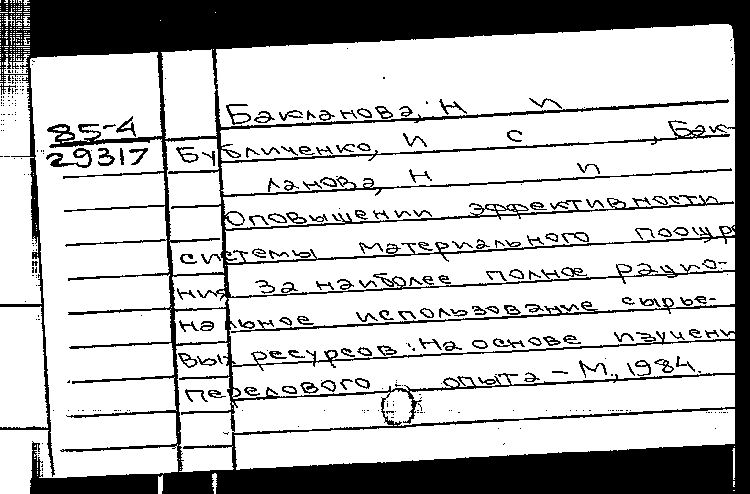 Бакланова, Н П
85-4
29317 Бубличенко, И С, Бак-
ланова, Н П
О повышении эффективности
системы материального поощре
ния за наиболее полное рацио-
нальное использование сырье-
вых ресурсов: На основе изучени
передового опыта – М., 1984.